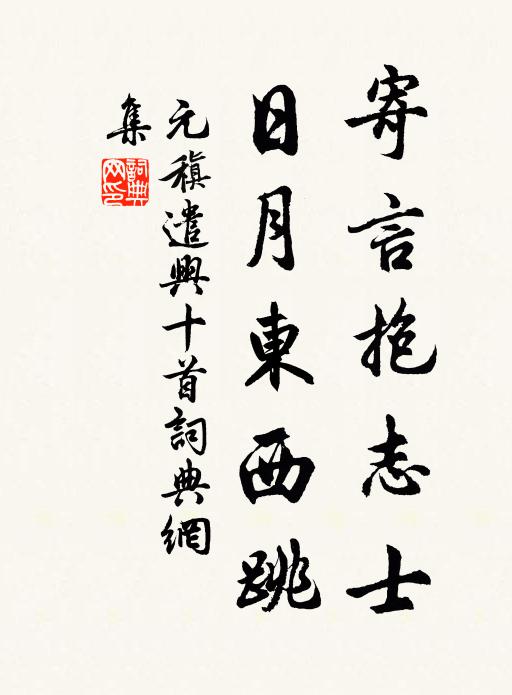 寄言抱志士
日月東西跳
元稹遣興十首詞典網
集
詞典
网印